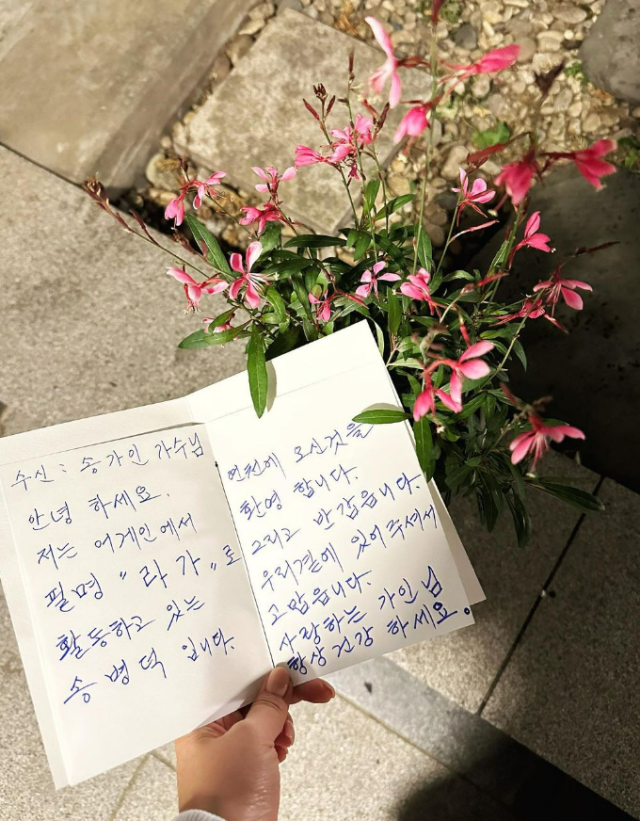 수신 : 송가인 가수님
안녕 하세요.
저는 어게인에서
필명 "라가"로
활동하고 있는
송병덕 입니다.
연천에 오신것을
환영 합니다.
그리고 반갑읍니다.
우리곁에 있어주셔서
고맙읍니다.
사랑하는 가인님
항상 건강 하세요.